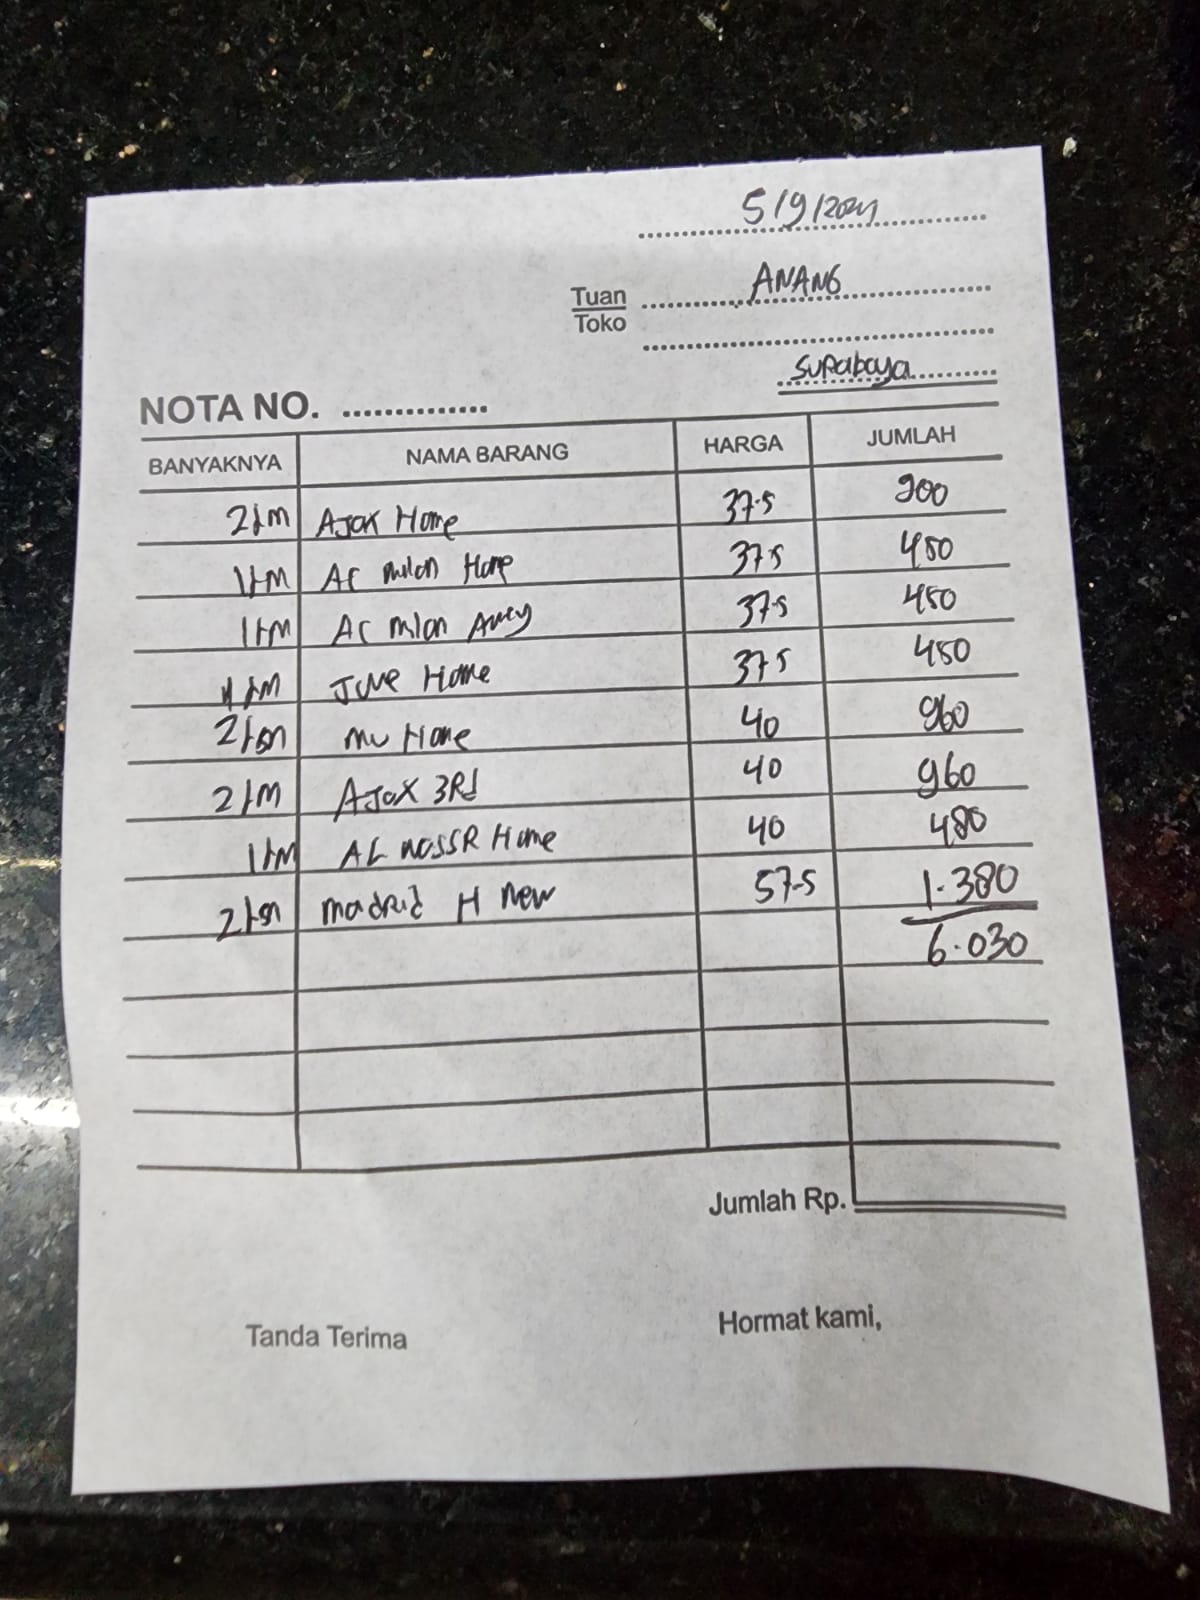 5/9/2024
Tuan ANANG
Toko
Surabaya
NOTA NO.
BANYAKNYA NAMA BARANG HARGA JUMLAH
2 LM AJAX Home 37.5 900
1 LM AC milan Home 37.5 450
1 LM AC milan Away 37.5 450
1 LM Juve Home 37.5 450
2 mu Home 40 960
2 LM AJAX 3Rd 40 960
1 LM AL NASSR Home 40 480
2 madrid H New 57.5 1.380
6.030
Jumlah Rp.
Tanda Terima Hormat kami,